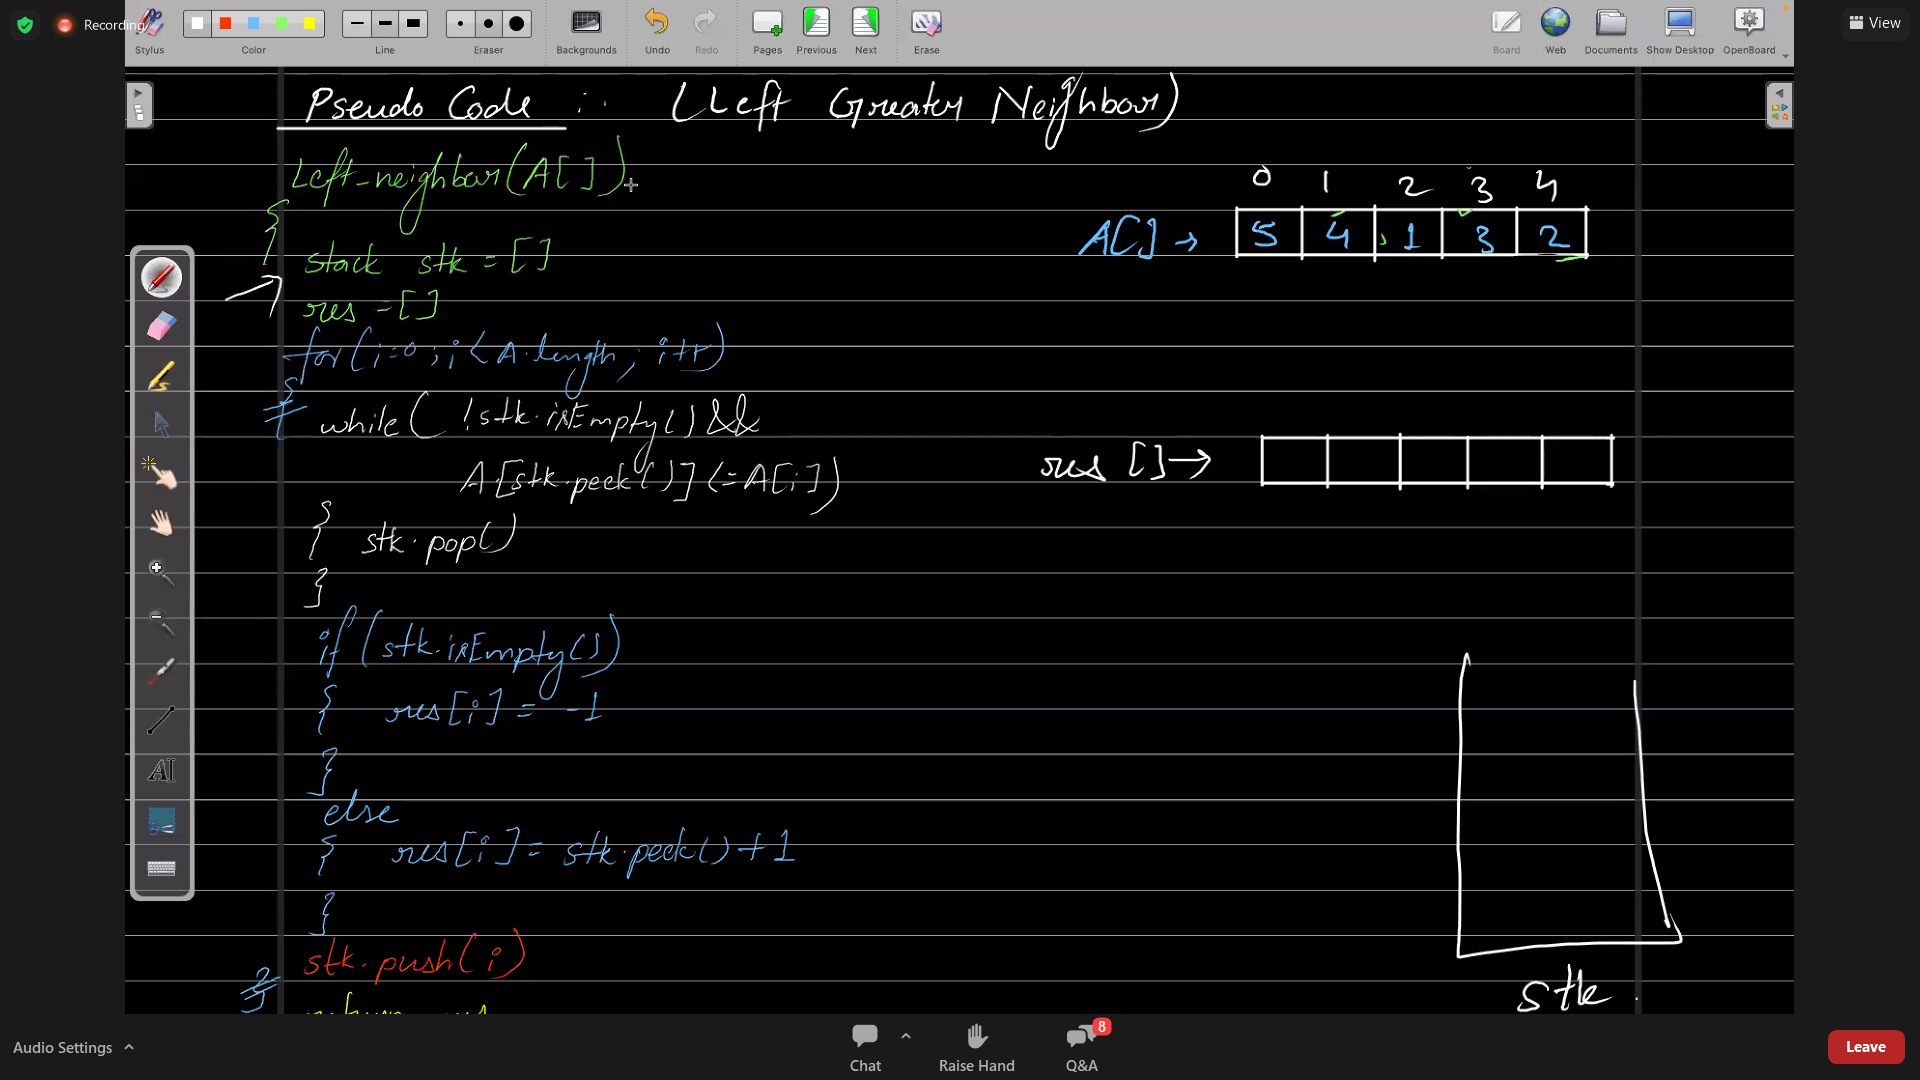 Recording
View
Stylus
Color
Line
Eraser
Backgrounds
Undo
Redo
Pages
Previous
Next
Erase
Board
Web
Documents
Show Desktop
OpenBoard
Pseudo Code :- (Left Greater Neighbour)
Left-neighbour(A[])
{
stack stk = []
res = []
for(i=0 ; i < A.length ; i++)
{
while( !stk.isEmpty() &&
A[stk.peek()] <= A[i])
{ stk.pop()
}
if (stk.isEmpty())
{ res[i] = -1
}
else
{ res[i] = stk.peek() + 1
}
stk.push(i)
}
return res
0 1 2 3 4
A[] → 5 4 1 3 2
res [] →
stk
AI
Audio Settings
Chat
Raise Hand
Q&A
8
Leave